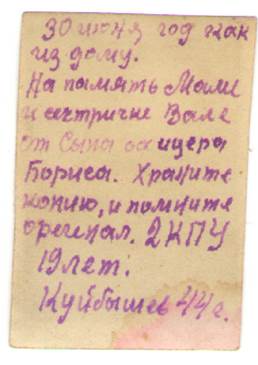 30 июня, год как
из дому.
На память Маме
и сестричке Вале
от Сына офицера
Бориса. Храните
копию, и помните
оренинал. 2КПУ
19 лет.
Куйбышев 44 г.